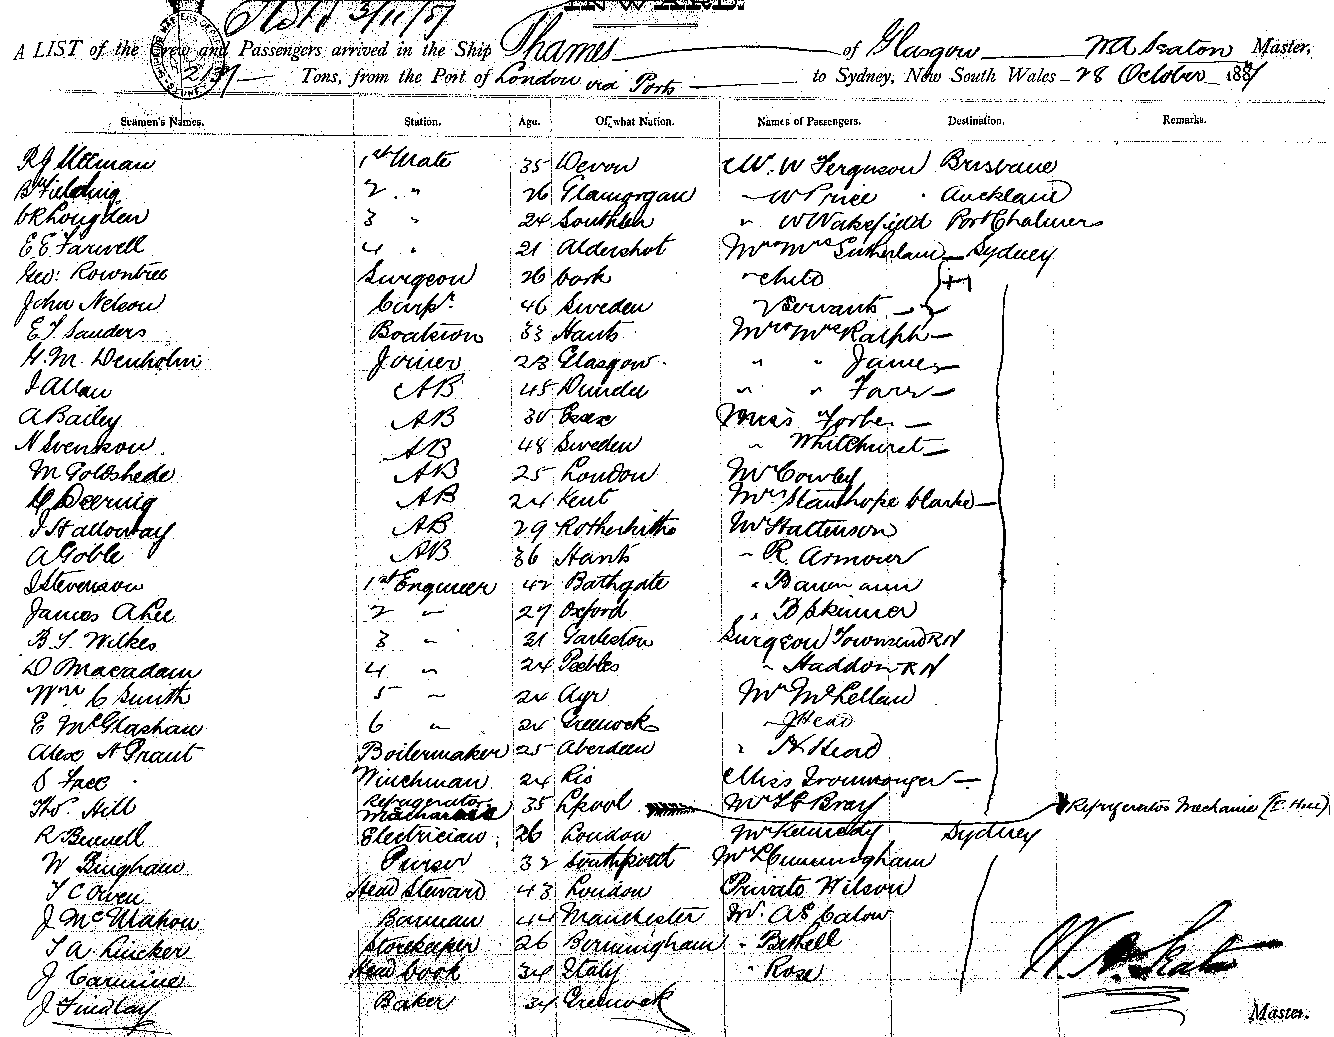 INWARD.
A LIST of the Crew and Passengers arrived in the Ship Thames of Glasgow Master,
2137 Tons, from the Port of London via Ports to Sydney, New South Wales 28 October 1887
Seamen's Names. Station. Age. Of what Nation. Names of Passengers. Destination. Remarks.
1st Mate 35 Devon Mr. W Ferguson Brisbane
B Fielding 2 " 26 Glamorgan " W Price Auckland
3 " 24 Southsea " W Wakefield Port Chalmers
E E Farwell 4 " 21 Aldershot Mr & Mrs Sutherland Sydney
Geo: Rowntree Surgeon 26 Cork " child
John Nelson Carpr. 46 Sweden 2 Servants
E J Sanders Boatswn 33 Hants Mr & Mrs Ralph
H. M. Denholm Joiner 23 Glasgow " " James
J Allan AB 45 Dundee " " Farr
A Bailey AB 30 Essex Miss Forbes
N Svenson AB 48 Sweden " Whitehurst
M Goldshede AB 25 London Mr Cowley
G Deering AB 24 Kent Mrs Stanthope Clarke
J Halloway AB 29 Rotherhithe Mr Hattenson
A Goble AB 36 Hants " R. Armour
J Stevenson 1st Engineer 42 Bathgate " Baumann
James A Lee 2 " 27 Oxford " D Skinner
B. S. Wilkes 3 " 31 Garlieston Surgeon Townsend RN
D Macadam 4 " 24 Peebles " Haddon RN
Wm C Smith 5 " 24 Ayr Mr McLellan
E McGlashan 6 " 24 Greenock " J Head
Alex H Grant Boilermaker 25 Aberdeen " H Head
Winchman 24 Rio Miss Ironmonger
Thos. Hill Refrigerator Machanic 35 Lpool Mr Bray Refrigerator Mechanic
R Bunnell Electrician 26 London Mr Kennedy Sydney
W Bingham Purser 32 Southport Mr L Cunningham
T C Owen Head Steward 43 London Private Wilson
J McMahon Barman 44 Manchester Mr. A E Calow
T A Lucker Storekeeper 26 Bermingham " Bethell
J Carmine Head Cook 34 Italy " Rose
J Findlay Baker 34 Greenock
Master.